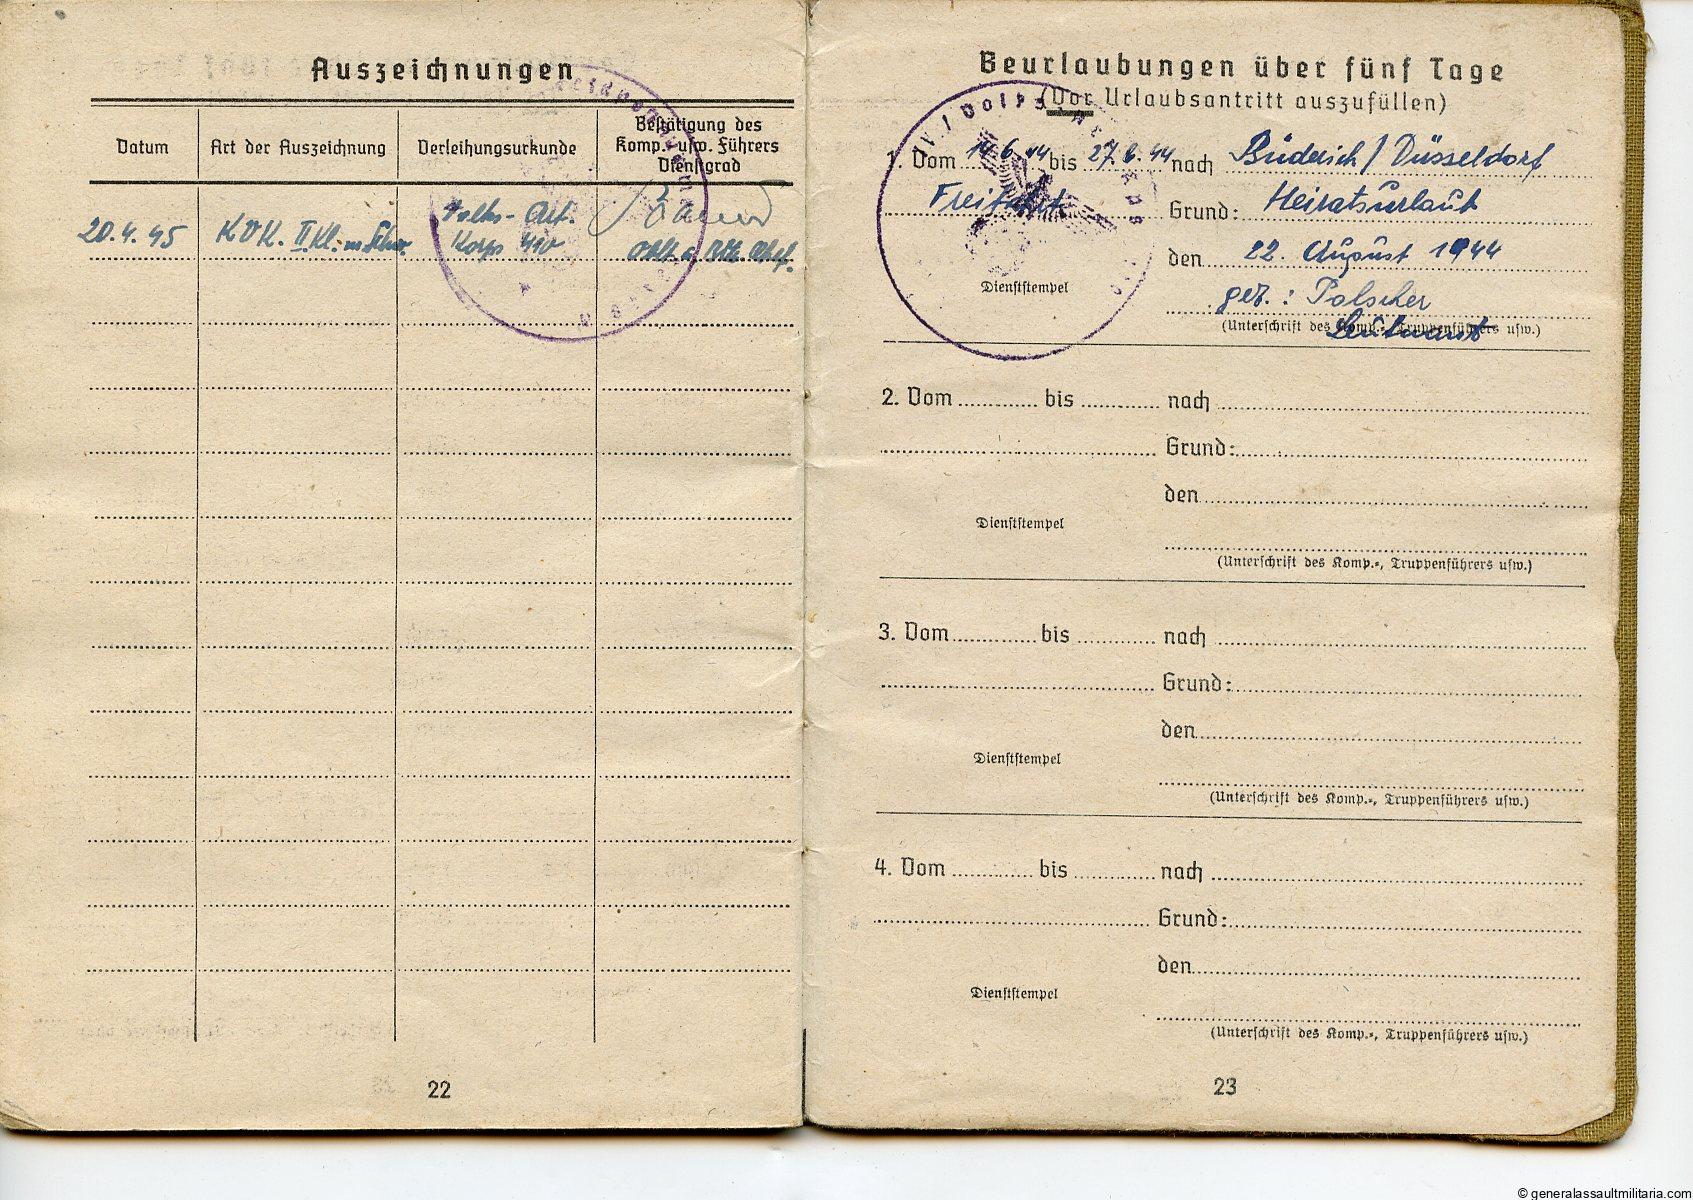 Auszeichnungen
Datum
Art der Auszeichnung
Verleihungsurkunde
Bestätigung des
Komp.- usw. Führers
Dienstgrad
20.4.45
KVK. II Kl. m Schw.
Volks-Art.
Korps 410
22
Beurlaubungen über fünf Tage
(Vor Urlaubsantritt auszufüllen)
1. Vom 14.6.44 bis 27.6.44 nach Büderich / Düsseldorf
Freifahrt Grund: Heiratsurlaub
den 22. August 1944
Dienststempel
gez.: Polscher
(Unterschrift des Komp.-, Truppenführers usw.)
Leutnant
2. Vom bis nach
Grund:
den
Dienststempel
(Unterschrift des Komp.-, Truppenführers usw.)
3. Vom bis nach
Grund:
den
Dienststempel
(Unterschrift des Komp.-, Truppenführers usw.)
4. Vom bis nach
Grund:
den
Dienststempel
(Unterschrift des Komp.-, Truppenführers usw.)
23
© generalassaultmilitaria.com